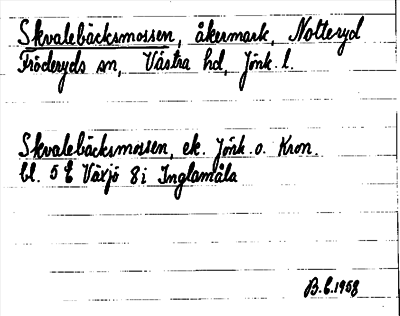 Skvalebäcksmossen, åkermark, Notteryd
Fröderyds sn, Västra hd, Jönk. l.
Skvalebäcksmossen, ek. Jönk. o. Kron.
bl. 5 E Växjö 8 i Inglamåla
B.E. 1958